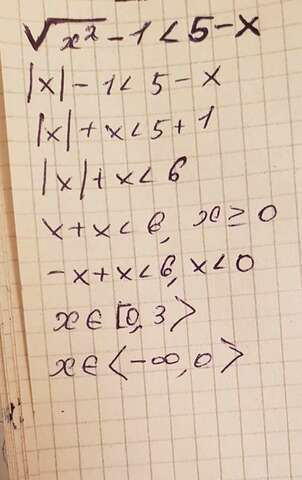 √x² - 1 < 5 - x
|x| - 1 < 5 - x
|x| + x < 5 + 1
|x| + x < 6
x + x < 6, x ≥ 0
-x + x < 6, x < 0
x ∈ [0, 3⟩
x ∈ ⟨-∞, 0⟩